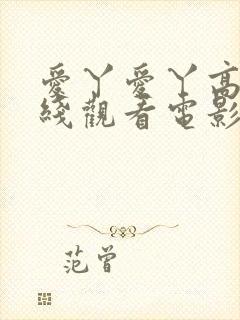 愛丫愛丫高
綫觀看電影
范曾